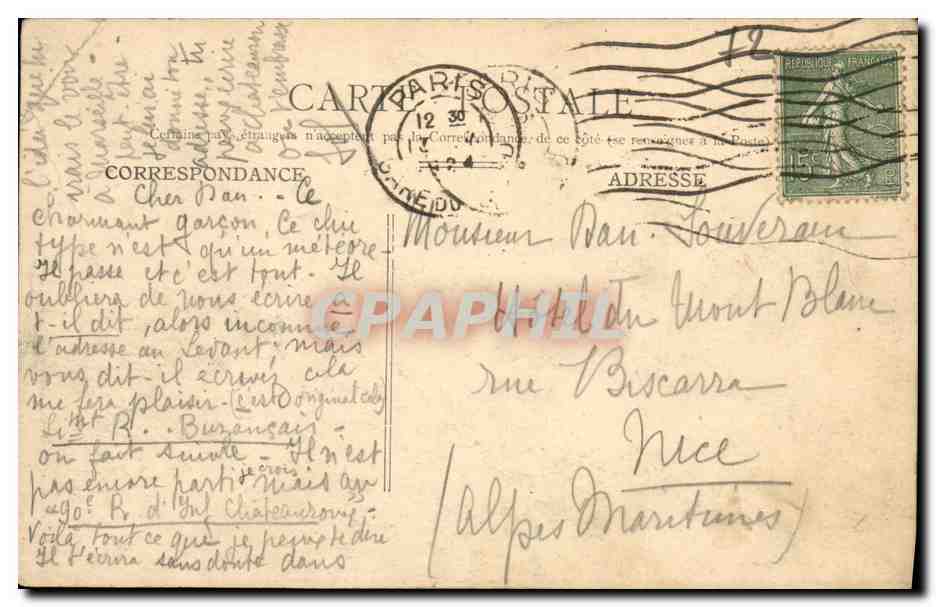 72
REPUBLIQUE FRANÇAISE
15c
POSTES
PARIS
12 30
1924
GARE DU
CARTE POSTALE
Certains pays étrangers n'acceptent pas la Correspondance de ce côté (se renseigner à la Poste)
CORRESPONDANCE
ADRESSE
Cher Dan.. Ce
charmant garçon, Ce chic
type n'est qu'un météore
Il passe et c'est tout. Il
oubliera de nous écrire a
t-il dit, alors inconnue
l'adresse au Levant; mais
vous dit-il écrivez cela
me fera plaisir- (c'est original cela)
Lint R. Buzançais-
on fait suivre- Il n'est
pas encore parti je crois mais au
"90e R. d'Inf Châteauroux"-
Voilà tout ce que je peux te dire
Il t'écrira sans doute dans
vrais le voir
à Marseille
peut être
demain
donne ton
adresse,
on t'embrasse
Monsieur Dan. Souverain
Hôtel du Mont Blanc
rue Biscarra
Nice
(Alpes Maritimes)
CPAPHIL